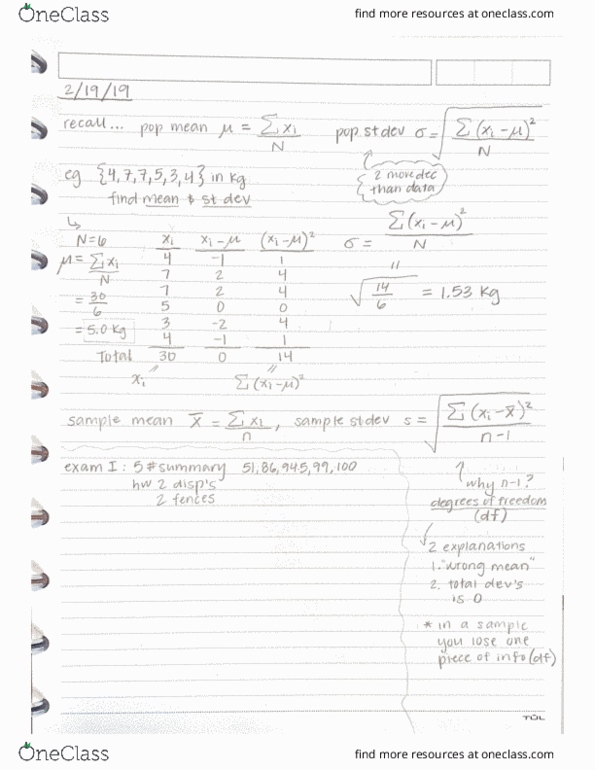 OneClass
find more resources at oneclass.com
2/19/19
recall... pop mean μ = Σxi / N pop. st dev σ = √(Σ(xi-μ)² / N)
2 more dec
than data
eg {4,7,7,5,3,4} in kg
find mean & st dev
N=6 xi xi-μ (xi-μ)² σ = Σ(xi-μ)² / N
μ = Σxi / N 4 -1 1
7 2 4
7 2 4 √(14/6) = 1.53 kg
= 30/6 5 0 0
= 5.0 kg 3 -2 4
4 -1 1
Total 30 0 14
xi Σ(xi-μ)²
sample mean x̄ = Σxi / n, sample st dev s = √(Σ(xi-x̄)² / n-1)
exam I : 5 # summary 51, 86, 94.5, 99, 100
hw 2 disp's
2 fences
why n-1?
degrees of freedom
(df)
2 explanations
1. "wrong mean"
2. total dev's
is 0
* in a sample
you lose one
piece of info (df)
TUL
OneClass
find more resources at oneclass.com